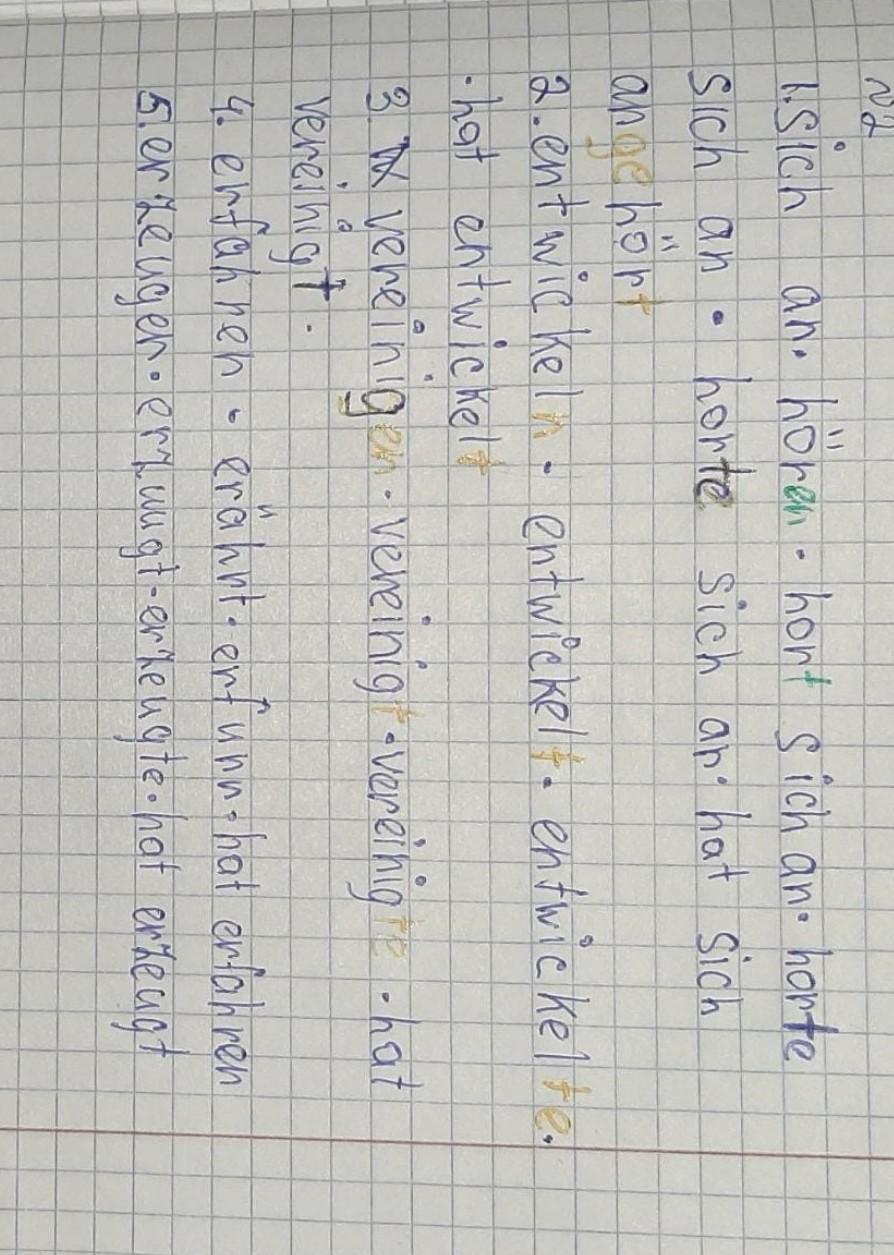 №2
1. Sich an. hören · hort sich an · horte
sich an · horte sich an · hat sich
angehört
2. entwickeln · entwickelt · entwickelte ·
· hat entwickelt
3. vereinigen · vereinigt · vereinigte · hat
vereinigt.
4. erfahren · erährt · erfunn · hat erfahren
5. erzeugen · erzuugt · erzeugte · hat erzeugt